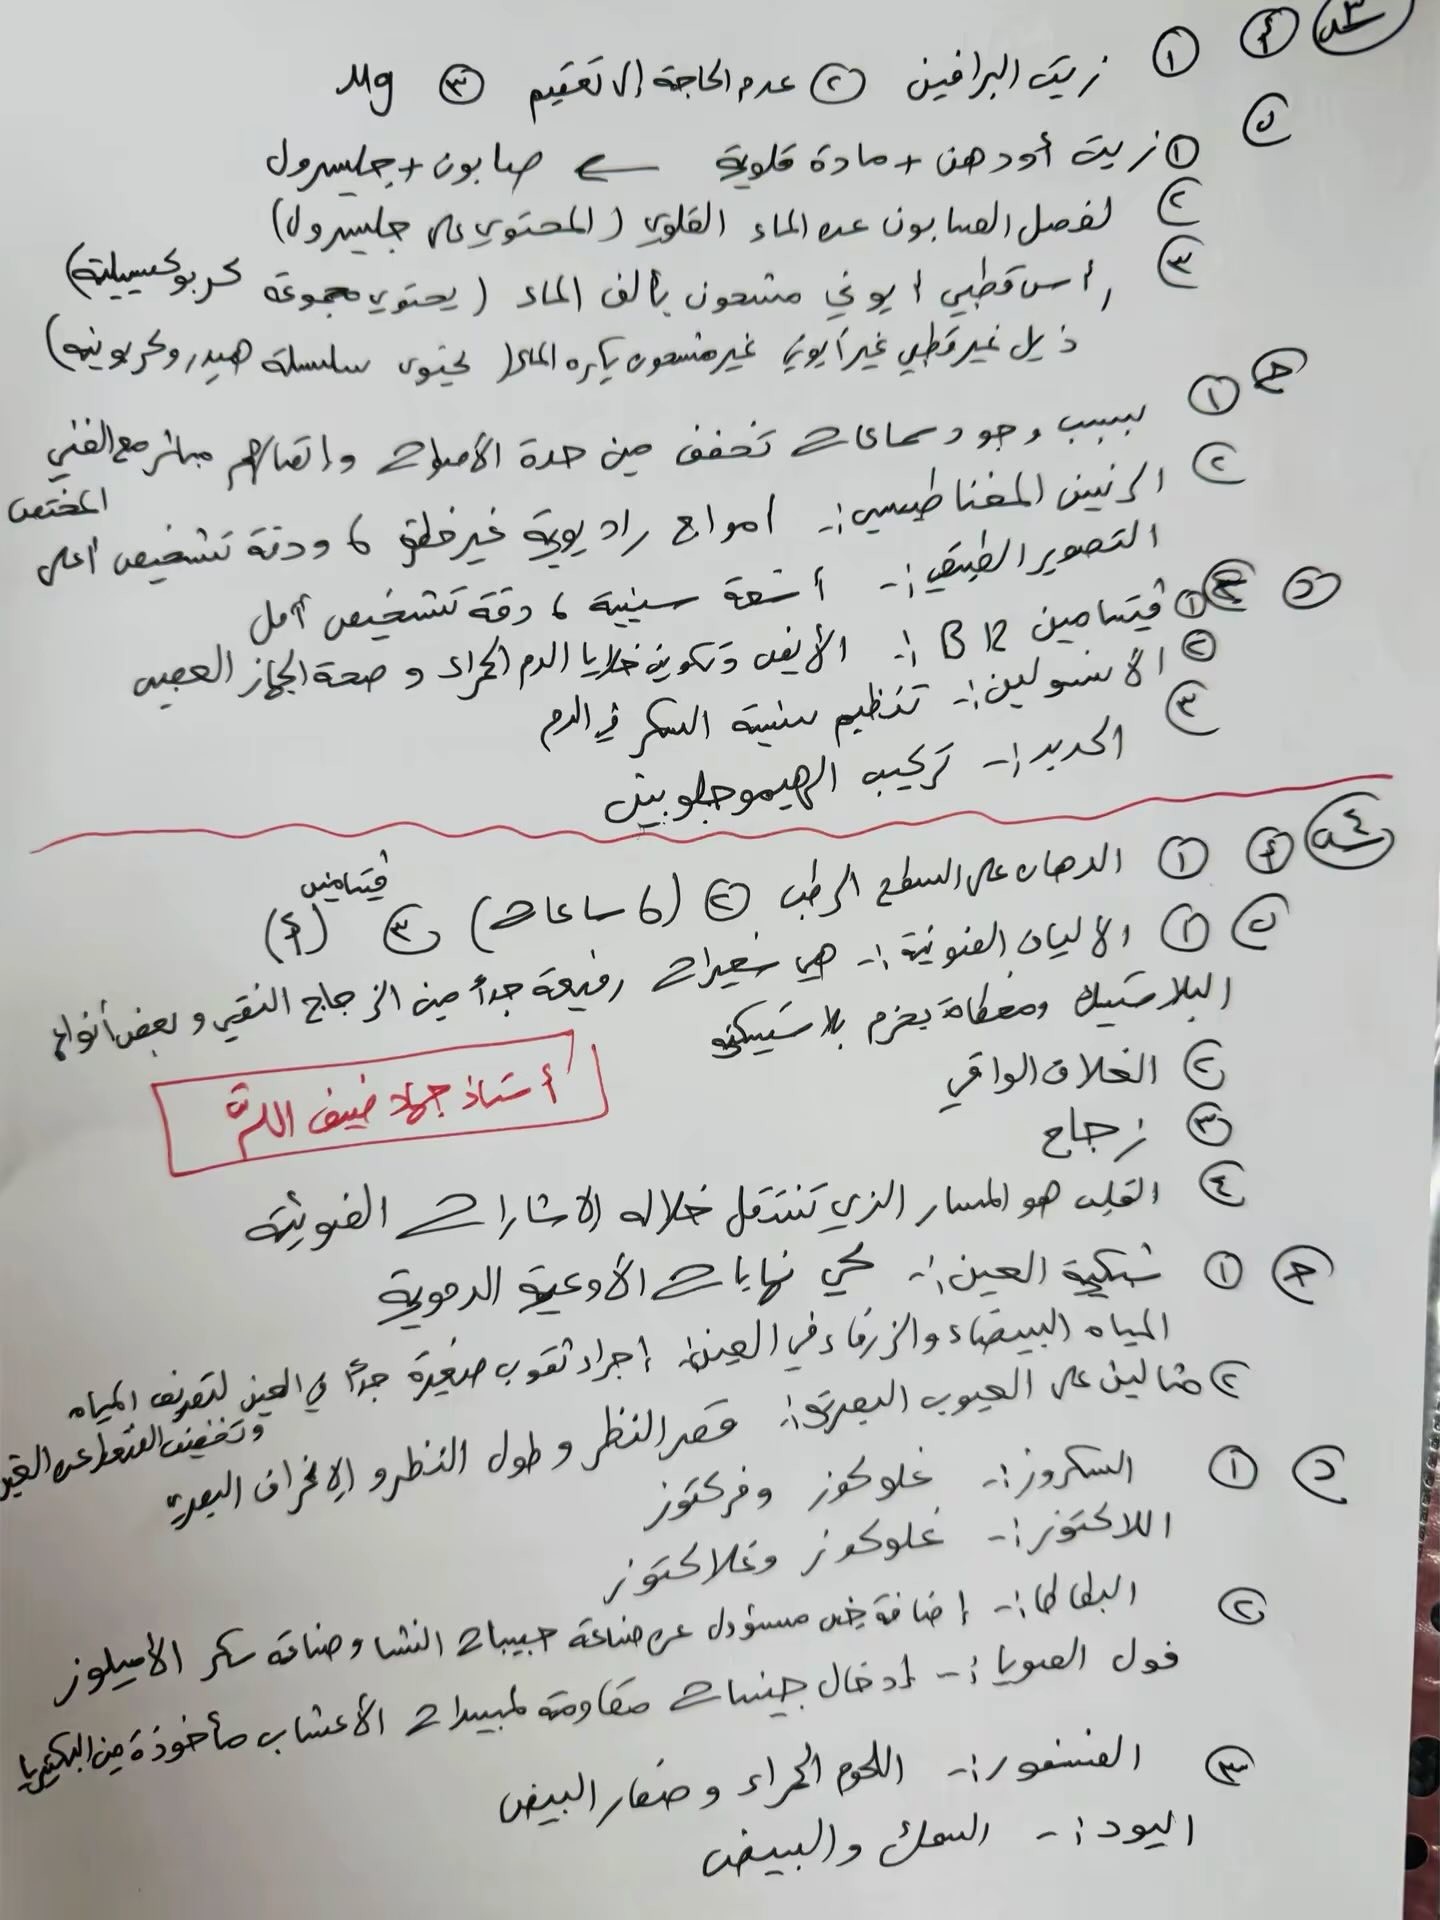 س٣ أ ① زيت البرافين ② عدم الحاجة إلى تعقيم ③ Mg
ب ① زيت أو دهن + مادة قلوية ← صابون + جليسرول
② لفصل الصابون عن الماء القلوي (المحتوي على جليسرول)
③ رأس قطبي أيوني مشحون يألف الماء (يحتوي مجموعة كربوكسيلية)
ذيل غير قطبي غير أيوني غير مشحون يكره الماء (يحتوي سلسلة هيدروكربونية)
ج ① بسبب وجود سماعات تخفف من حدة الأصوات وإتصالهم مباشر مع الفني
المختص
② الرنين المغناطيسي:- امواج راديوية غير خطرة ، ودقة تشخيص أعلى
التصوير الطبقي:- أشعة سينية ، دقة تشخيص أقل
د ① فيتامين B12:- الأيض وتكوين خلايا الدم الحمراء وصحة الجهاز العصبي
② الأنسولين:- تنظيم نسبة السكر في الدم
③ الحديد:- تركيب الهيموجلوبين
س٤ أ ① الدهان على السطح الرطب ② (6 ساعات) ③ فيتامين (أ)
ب ① الالياف الضوئية:- هي شعيرات رفيعة جداً من الزجاج النقي وبعض أنواع
البلاستيك ومغطاة بحزم بلاستيكية
② الغلاف الواقي
③ زجاج
أستاذ جهاد ضيف الله
④ القلب هو المسار الذي تنتقل خلاله الاشارات الضوئية
ج ① شبكية العين:- كي نهايات الأوعية الدموية
المياه البيضاء والزرقاء في العين:- إجراء ثقوب صغيرة جداً في العين لتصريف المياه
وتخفيف الضغط عن
② مثالين على العيوب البصرية:- قصر النظر وطول النظر والإنحراف البصري
د ① السكروز:- غلوكوز وفركتوز
اللاكتوز:- غلوكوز وغلاكتوز
② البطاطا:- إضافة جين مسؤول عن صناعة حبيبات النشا وصناعة سكر الأميلوز
فول الصويا:- إدخال جينات مقاومة لمبيدات الأعشاب مأخوذة من البكتيريا
③ الفسفور:- اللحوم الحمراء وصفار البيض
اليود:- السمك والبيض